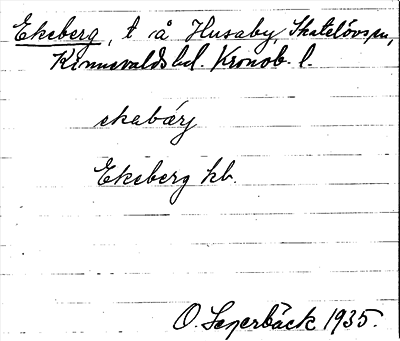 Ekeberg, t å Husaby, Skatelövs sn,
Kinnevalds hd. Kronob. l.
ekabärj
Ekeberg kb.
O. Lagerbäck 1935.